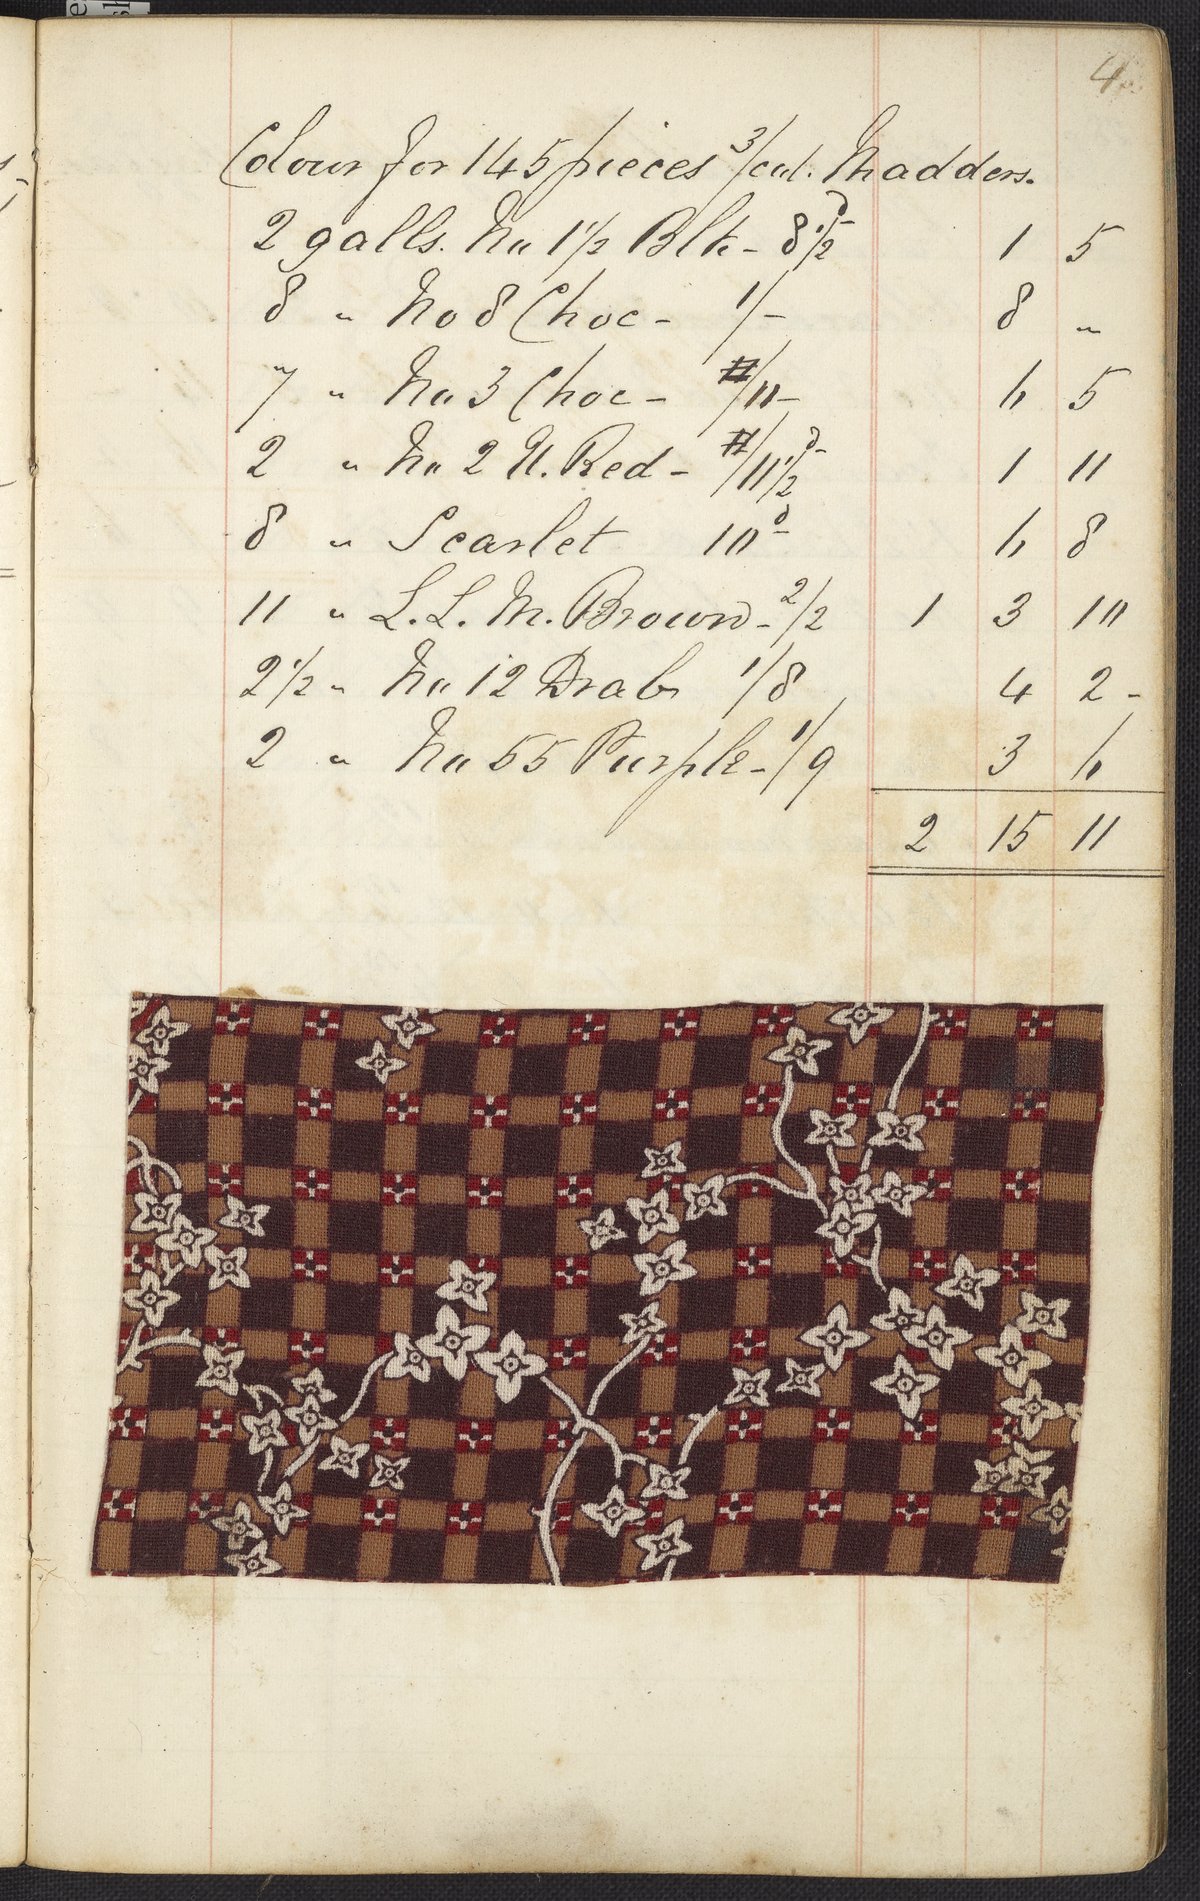 4
Colour for 145 pieces 3/col. Madders.
2 galls. No 1½ Blk - 8½d 1 5
8 " No 8 Choc - 1/- 8 "
7 " No 3 Choc - /11 - 6 5
2 " No 2 N. Red - /11½d 1 11
8 " Scarlet 10d 6 8
11 " L. L. M. Brown - 2/2 1 3 10
2½ " No 12 Drab 1/8 4 2 -
2 " No 55 Purple - 1/9 3 6
2 15 11